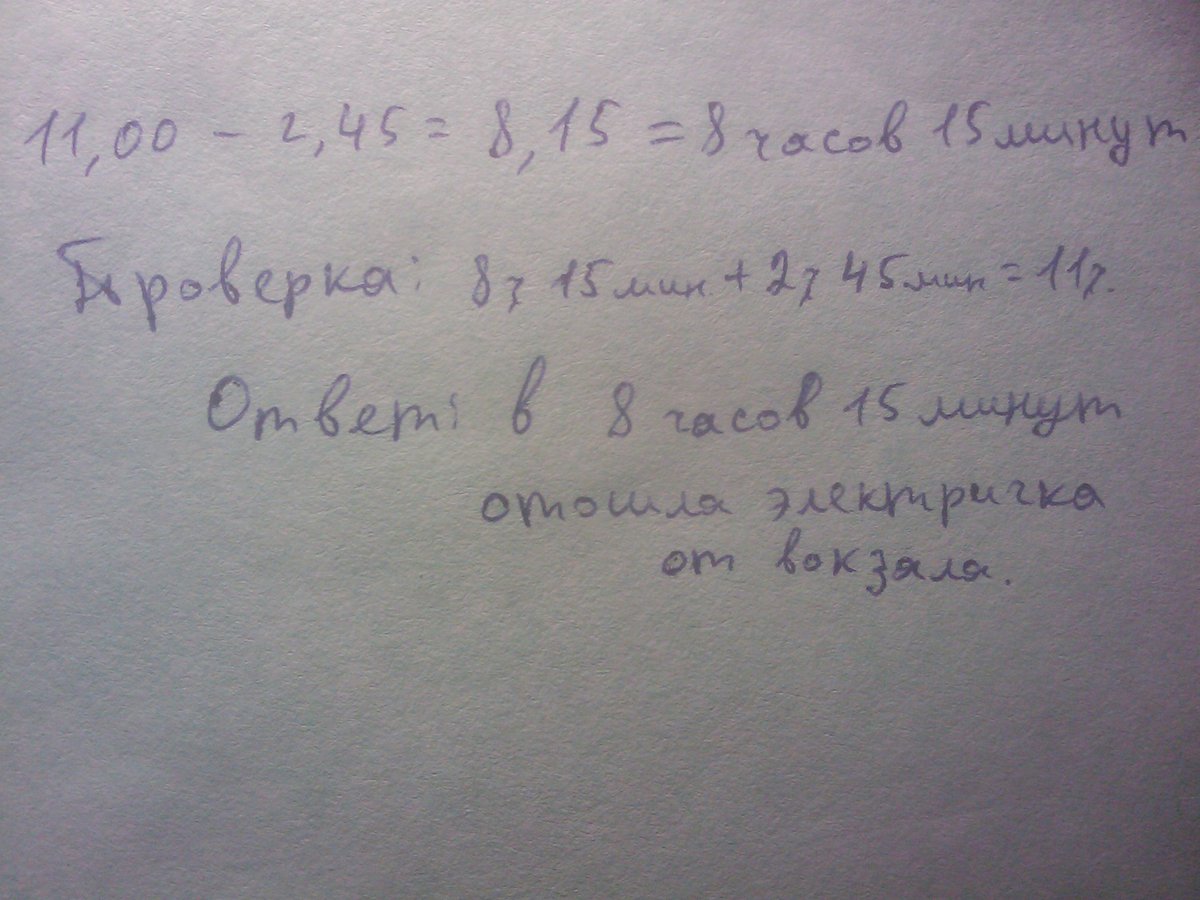 11,00 - 2,45 = 8,15 = 8 часов 15 минут
Проверка: 8ч 15мин + 2ч 45мин = 11ч.
Ответ: в 8 часов 15 минут
отошла электричка
от вокзала.